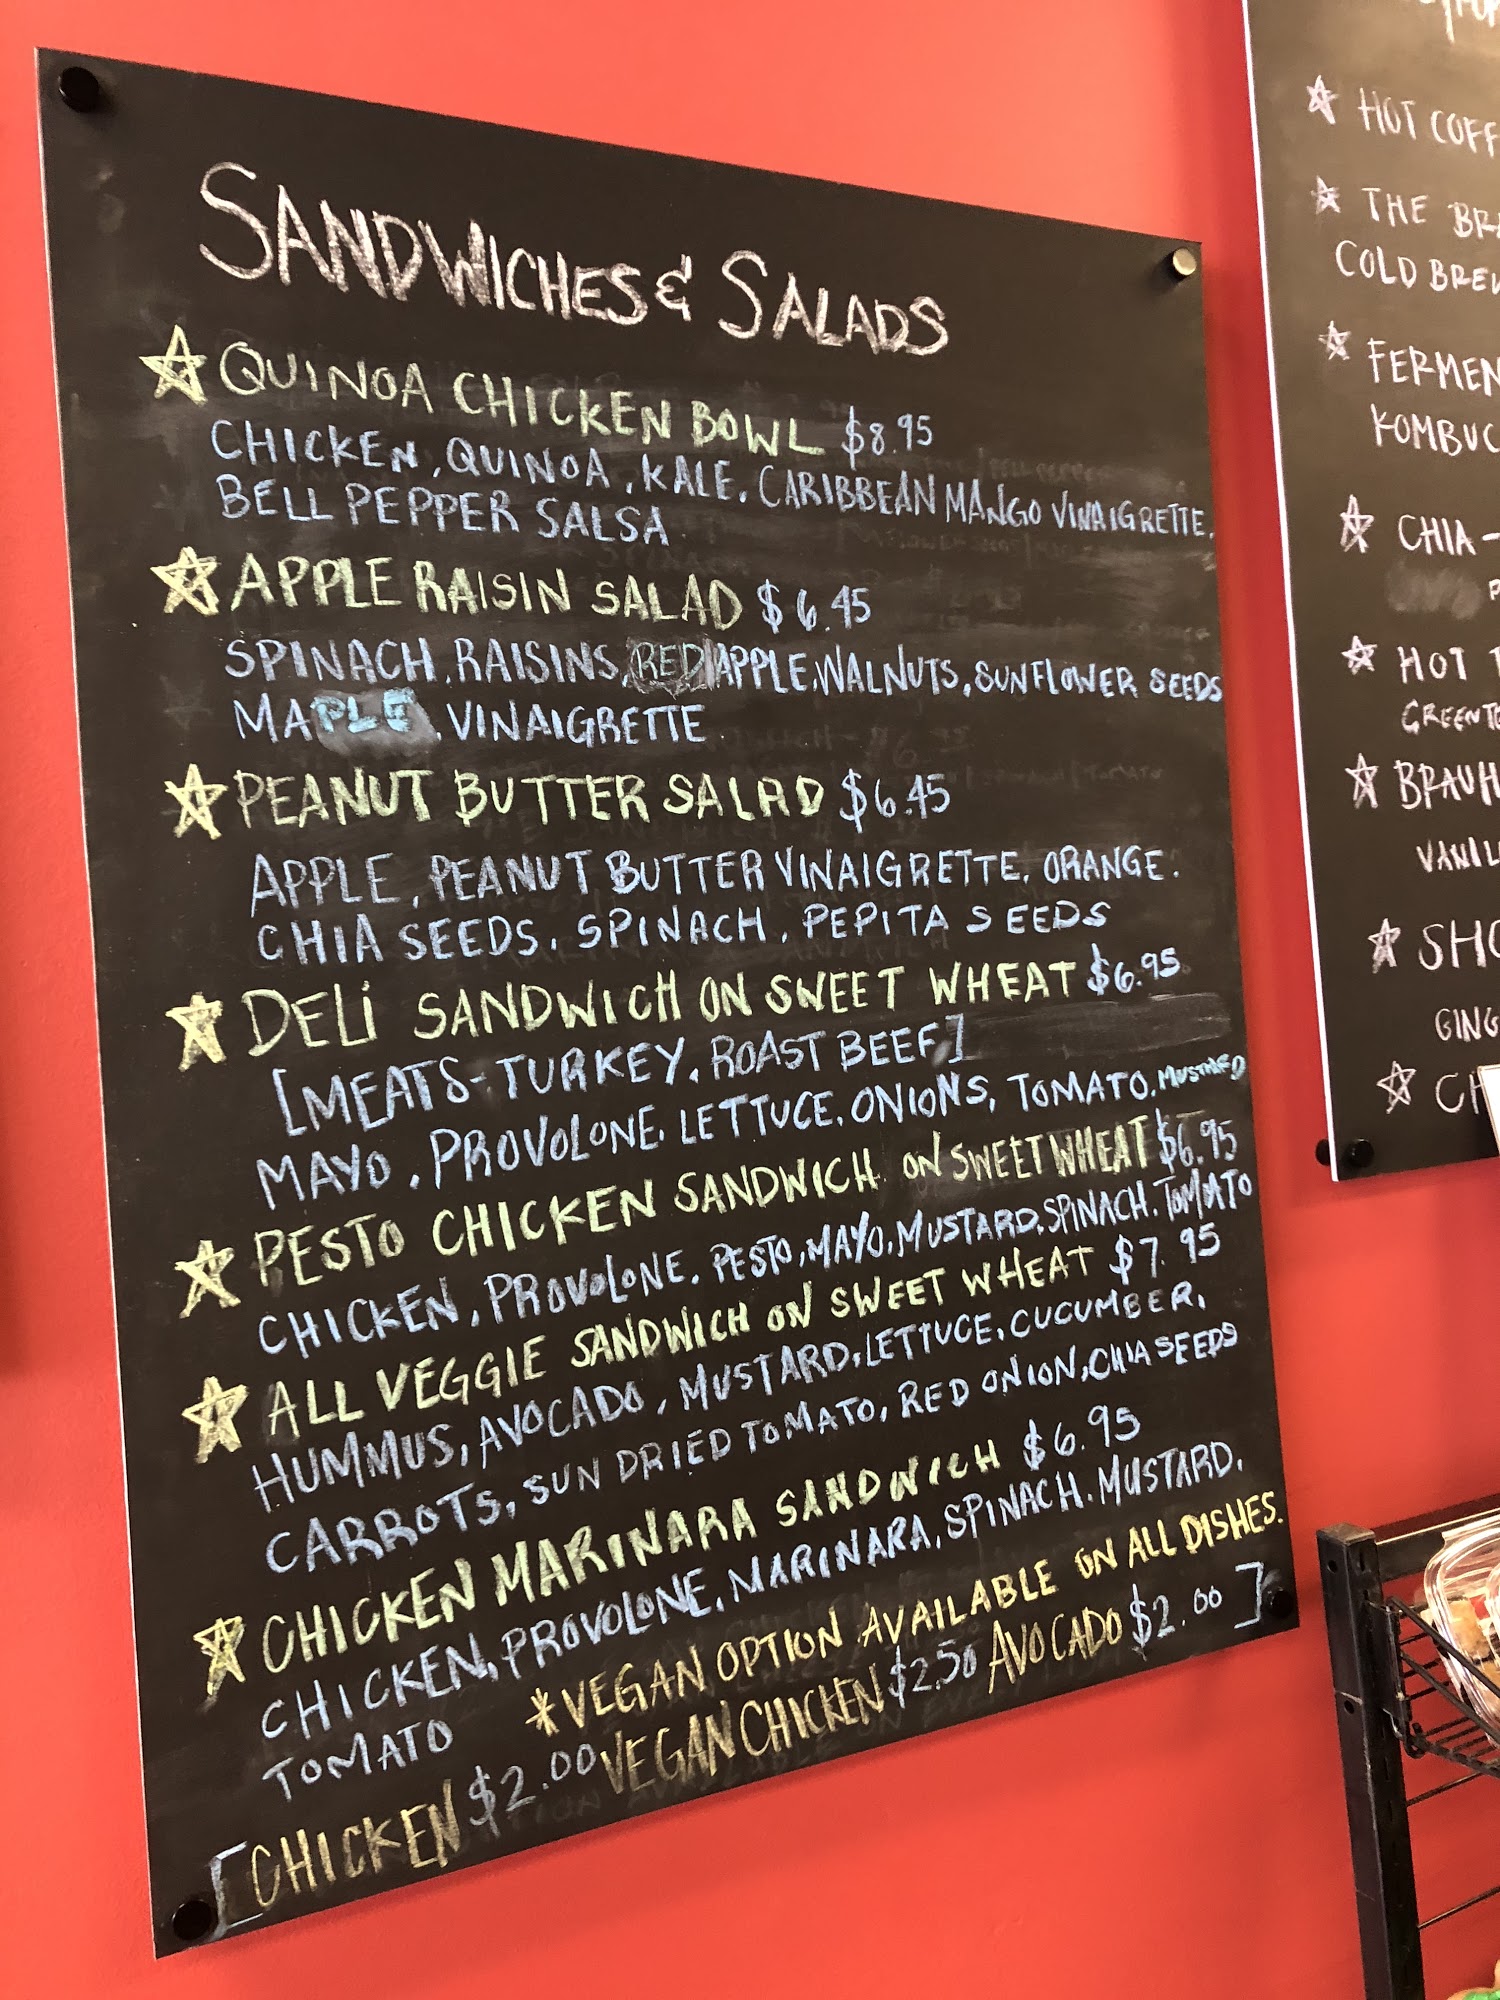 SANDWICHES & SALADS
QUINOA CHICKEN BOWL $8.95
CHICKEN, QUINOA, KALE, CARIBBEAN MANGO VINAIGRETTE,
BELL PEPPER SALSA
APPLE RAISIN SALAD $6.45
SPINACH, RAISINS, RED APPLE, WALNUTS, SUNFLOWER SEEDS
MAPLE, VINAIGRETTE
PEANUT BUTTER SALAD $6.45
APPLE, PEANUT BUTTER VINAIGRETTE, ORANGE.
CHIA SEEDS, SPINACH, PEPITA SEEDS
DELI SANDWICH ON SWEET WHEAT $6.95
[MEATS-TURKEY, ROAST BEEF]
MAYO, PROVOLONE, LETTUCE, ONIONS, TOMATO, MUSTARD
PESTO CHICKEN SANDWICH ON SWEET WHEAT $6.95
CHICKEN, PROVOLONE, PESTO, MAYO, MUSTARD, SPINACH, TOMATO
ALL VEGGIE SANDWICH ON SWEET WHEAT $7.95
HUMMUS, AVOCADO, MUSTARD, LETTUCE, CUCUMBER,
CARROTS, SUN DRIED TOMATO, RED ONION, CHIA SEEDS
CHICKEN MARINARA SANDWICH $6.95
CHICKEN, PROVOLONE, MARINARA, SPINACH, MUSTARD,
TOMATO
*VEGAN OPTION AVAILABLE ON ALL DISHES.
[CHICKEN $2.00 VEGAN CHICKEN $2.50 AVOCADO $2.00]
HOT COFF
THE BR
COLD BREW
FERMEN
KOMBUC
CHIA-
HOT T
GREEN TE
BRAUH
VANIL
SHO
GING
CH